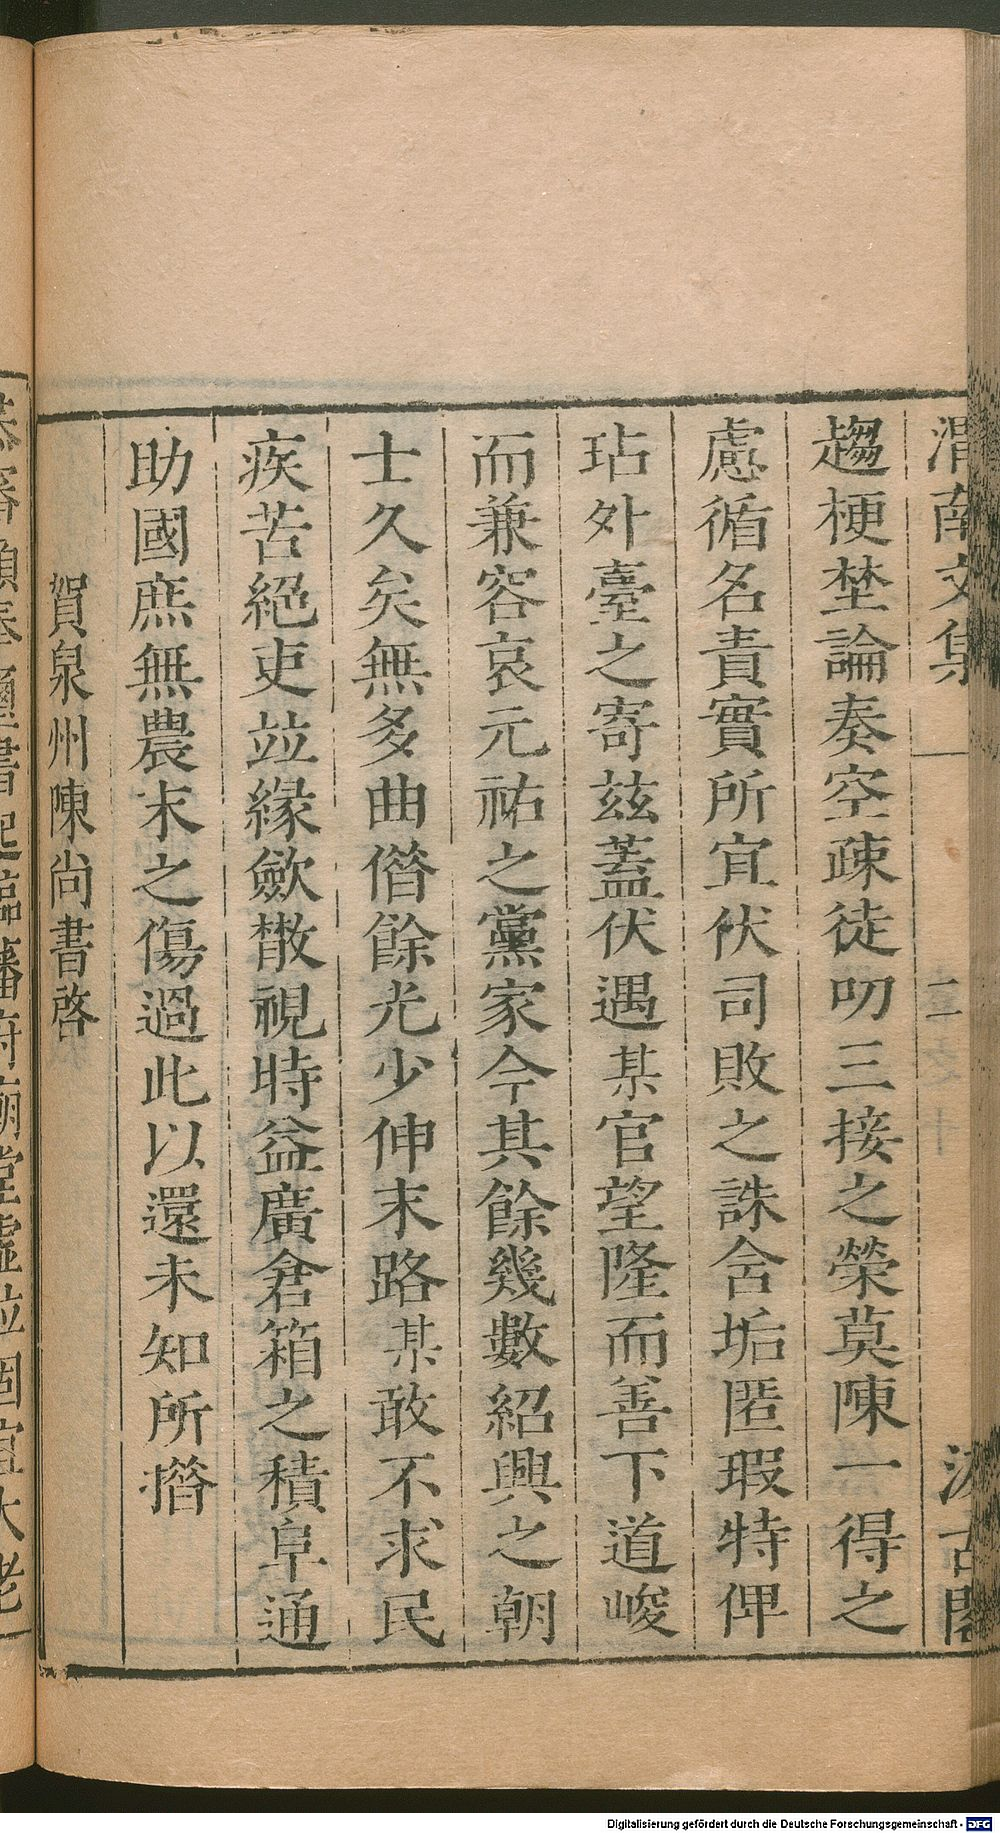 渭南文集 二 汲古閣
趨梗埜論奏空疎徒叨三接之榮莫陳一得之
慮循名責實所宜伏司敗之誅舍垢匿瑕特俾
玷外臺之寄茲蓋伏遇某官望隆而善下道峻
而兼容哀元祐之黨家今其餘幾數紹興之朝
士久矣無多曲偺餘光少伸末路某敢不求民
疾苦絕吏竝緣歛散視時益廣倉箱之積阜通
助國庶無農末之傷過此以還未知所措
賀泉州陳尚書啓
Digitalisierung gefördert durch die Deutsche Forschungsgemeinschaft - DFG